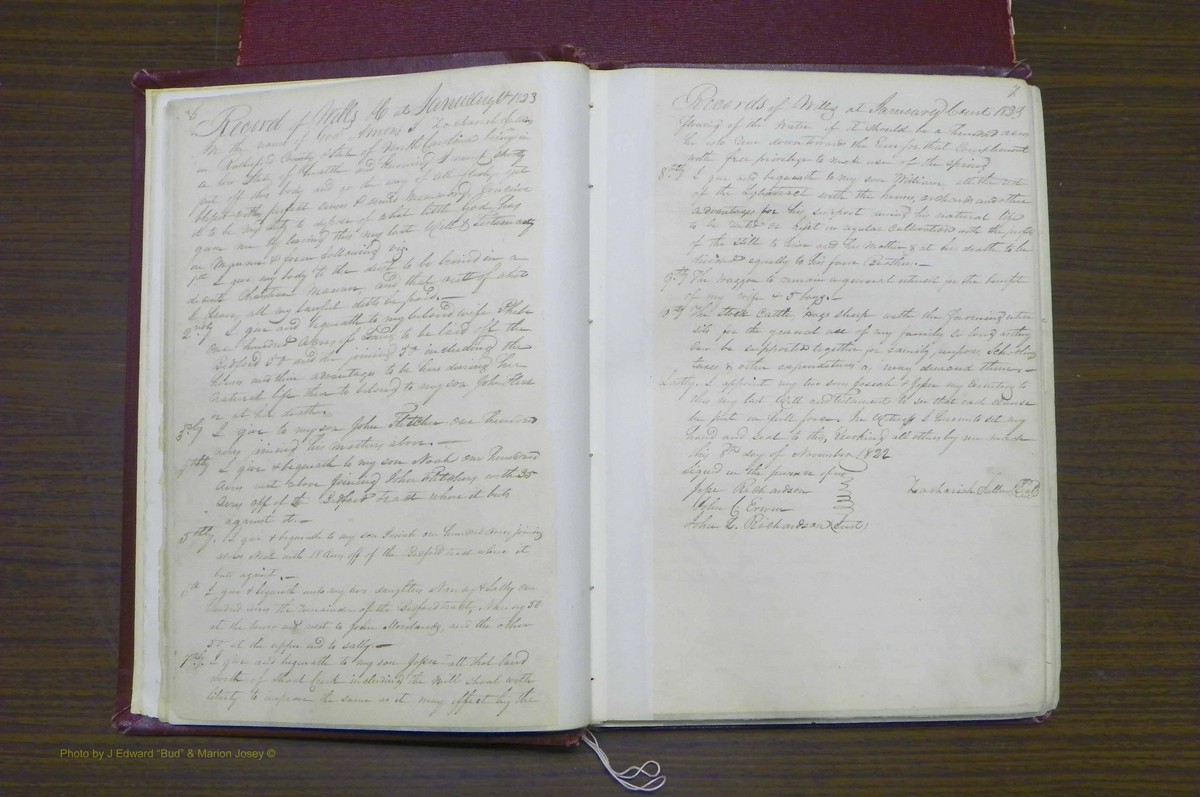 6
Record of Wills &c at January Ct 1823
In the name of God Amen I Zachariah
in Rutherford County & State of North Carolina being in
a low State of health and knowing I must shortly
put off this body and go the way of all flesh, yet
blessed with perfect senses &
to be my duty to dispose of what little God has
gave me by leaving this my last Will & testament
in manner & form following viz
1st I give my body to the dust to be buried in a
decent Christian manner and that out of what
I leave all my lawful debts be paid.—
2ndly I give and bequeath to my beloved wife
one hundred Acres of Land to be laid off the
Bedford 50 and then joining 50 including the
advantages to be hers during her
natural life then to belong to my son John
or at her death.—
3rdly I give to my son John Fletcher one hundred
acres joining his mothers above.—
4thly I give & bequeath to my son Noah one hundred
acres next above joining John Fletchers with 35
acres off of the Bedford tract where it buts
against it.—
5thly I give & bequeath to my son one hundred acres joining
above with 18 acres off of the Bedford tract where it
buts against.—
6th I give & bequeath unto my two daughters Nancy & Sally one
hundred acres the remainder of the Bedford tract, Nancy 50
at the lower end next to John and the other
50 at the upper end to Sally.—
7thly I give and bequeath to my son Jesse all that land
north of Creek including the Mill Shoal with
liberty to improve the same as it may effect by the
7
Records of Wills at January Court 1823
flowing of the Water if it should be a hundred acres
he is to
with free privilege to make use of the spring
8thly I give and bequeath to my son William all the
of the with the house, orchard and other
advantages for his support during his natural life
to be or kept in regular cultivation with the profits
of the Still to him and the Mother & at her death to be
divided equally to his four Brothers.—
9thly The waggon to remain a general interest for the benefit
of my wife & 5 boys.—
10thly The stock Cattle Hogs sheep with the farming uten
sils for the general use of my family so long as they
can be supported together for family purposes Schooling
taxes & other expenditures as may demand them.—
Lastly. I appoint my two sons Josiah & Jesse my executors to
this my last Will and testament to see that each clause
be put in full force. In Witness I hereunto set my
hand and Seal to this, Revoking all others by me made
this 8th day of November 1822
signed in the presence of us
Jesse Richardson Zachariah Sutton (Seal)
John C. Erwin
John L. Richardson (Jurt)
Photo by J Edward "Bud" & Marion Josey ©